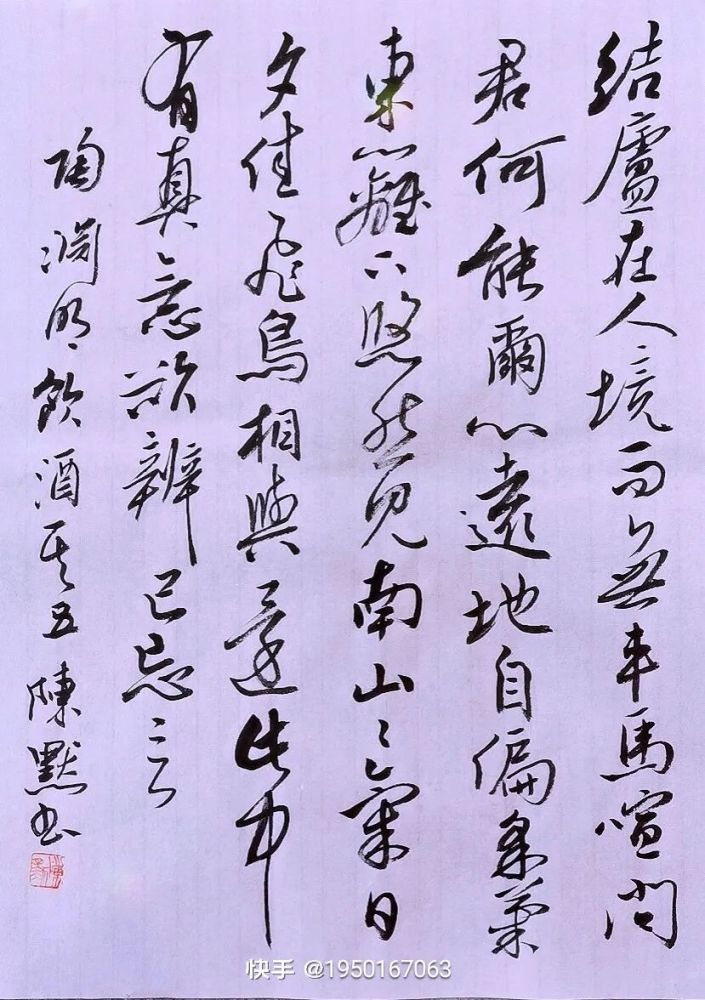 結廬在人境而無車馬喧問
君何能爾心遠地自偏采菊
東籬下悠然見南山〻氣日
夕佳飛鳥相與還此中
有真意欲辨已忘言
陶渕明飲酒其五 陳默书
快手 @1950167063